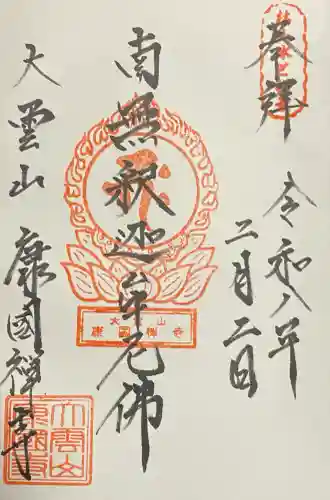 奉拝
令和八年
二月二日
南無釈迦牟尼佛
大雲山
康國禅寺
大雲山
康國禅寺